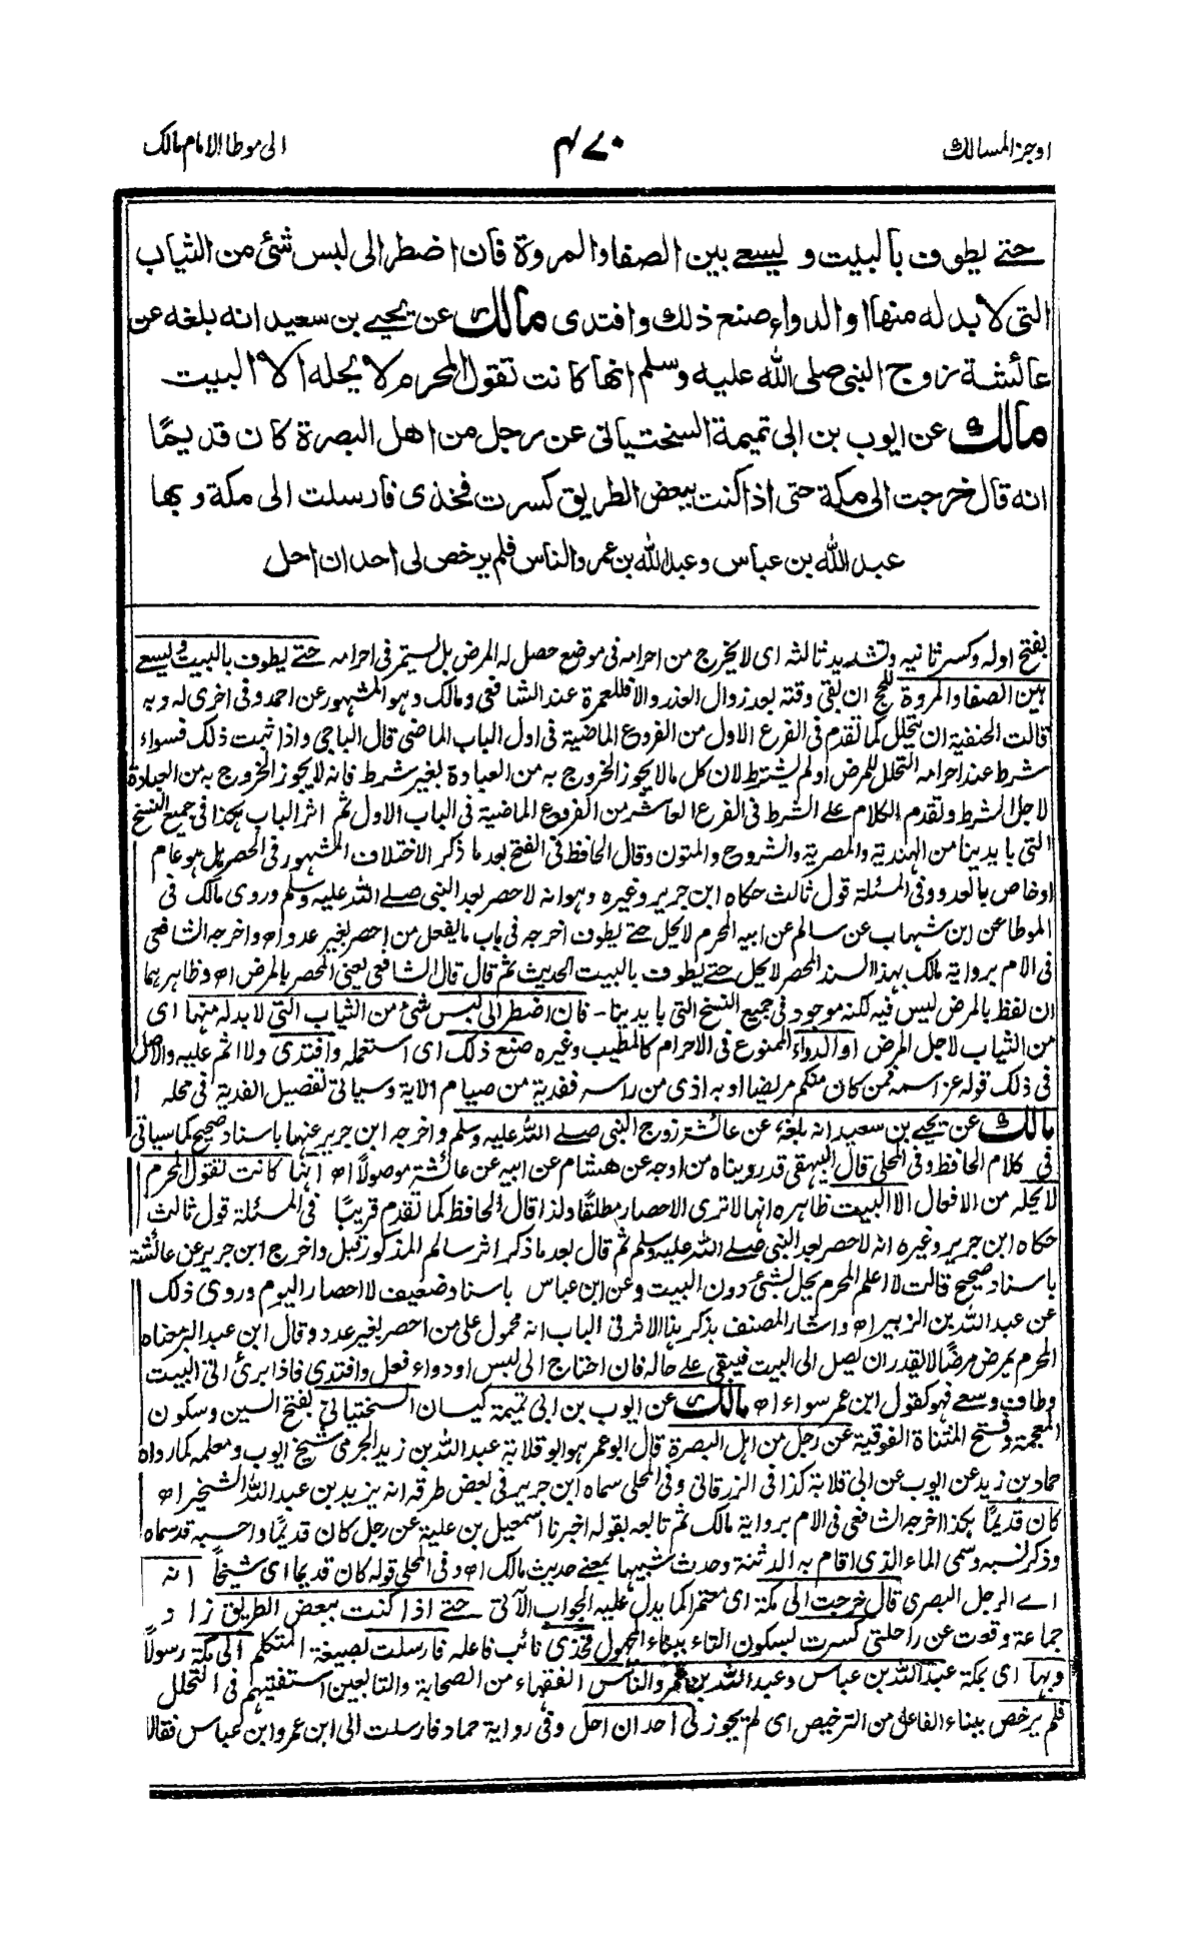 اوجز المسالك
٤٧٠
الى موطا الامام مالك
حتى يطوف بالبيت و يسعى بين الصفا والمروة فان اضطر الى لبس شئ من الثياب
التى لا بد له منها او الدواء صنع ذلك وافتدى مالك عن يحيى بن سعيد انه بلغه عن
عائشة زوج النبى صلى الله عليه وسلم انها كانت تقول المحرم لا يحله الا البيت
مالك عن ايوب بن ابى تميمة السختيانى عن رجل من اهل البصرة كان قديمًا
انه قال خرجت الى مكة حتى اذا كنت ببعض الطريق كسرت فخذى فارسلت الى مكة وبها
عبد الله بن عباس وعبد الله بن عمر والناس فلم يرخص لى احد ان احل
بفتح اوله وكسر ثانيه وتشديد ثالثه اى لا يخرج من احرامه فى موضع حصل له المرض بل يستمر فى احرامه حتى يطوف بالبيت ويسعى
بين الصفا والمروة للحج ان بقى وقته بعد زوال العذر والا فللعمرة عند الشافعى ومالك وهو المشهور عن احمد وفى اخرى له وبه
قالت الحنفية ان يتحلل كما تقدم فى الفرع الاول من الفروع الماضية فى اول الباب الماضى قال الباجى واذا ثبت ذلك فسواء
شرط عند احرامه التحلل للمرض او لم يشترط لان كل ما لا يجوز الخروج به من العبادة بغير شرط فانه لا يجوز الخروج به من العبادة
لاجل الشرط وتقدم الكلام على الشرط فى الفرع العاشر من الفروع الماضية فى الباب الاول ثم اثر الباب هكذا فى جميع النسخ
التى بايدينا من الهندية والمصرية والشروح والمتون وقال الحافظ فى الفتح بعد ما ذكر الاختلاف المشهور فى الحصر هل هو عام
او خاص بالعدو وفى المسئلة قول ثالث حكاه ابن جرير وغيره وهو انه لا حصر بعد النبى صلى الله عليه وسلم وروى مالك فى
الموطا عن ابن شهاب عن سالم عن ابيه المحرم لا يحل حتى يطوف اخرجه فى باب ما يفعل من احصر بغير عدو اھ واخرجه الشافعى
فى الام برواية مالك بهذا السند المحصر لا يحل حتى يطوف بالبيت الحديث ثم قال قال الشافعى يعنى المحصر بالمرض اھ وظاهرهما
ان لفظ بالمرض ليس فيه لكنه موجود فى جميع النسخ التى بايدينا - فان اضطر الى لبس شئ من الثياب التى لا بد له منها اى
من الثياب لاجل المرض او الدواء الممنوع فى الاحرام كالمطيب وغيره صنع ذلك اى استعمله وافتدى ولا اثم عليه والاصل
فى ذلك قوله عز اسمه فمن كان منكم مريضا او به اذى من راسه ففدية من صيام الاية وسياتى تفصيل الفدية فى محله
مالك عن يحيى بن سعيد انه بلغه عن عائشة زوج النبى صلى الله عليه وسلم واخرجه ابن جرير عنها باسناد صحيح كما سياتى
فى كلام الحافظ وفى المحلى قال البيهقى قد روينا من اوجه عن هشام عن ابيه عن عائشة موصولاً اھ انها كانت تقول المحرم
لا يحله من الافعال الا البيت ظاهره انها لا ترى الاحصار مطلقًا ولذا قال الحافظ كما تقدم قريبًا فى المسئلة قول ثالث
حكاه ابن جرير وغيره انه لا حصر بعد النبى صلى الله عليه وسلم ثم قال بعد ما ذكر اثر سالم المذكور قبل واخرج ابن جرير عن عائشة
باسناد صحيح قالت لا اعلم المحرم يحل بشئ دون البيت وعن ابن عباس باسناد ضعيف لا احصار اليوم وروى ذلك
عن عبد الله بن الزبير اھ واشار المصنف بذكر هذا الاثر فى الباب انه محمول على من احصر بغير عدو وقال ابن عبد البر معناه
المحرم يمرض مرضًا لا يقدر ان يصل الى البيت فيبقى على حاله فان احتاج الى لبس او دواء فعل وافتدى فاذا برئ اتى البيت
وطاف وسعى فهو كقول ابن عمر سواء اھ مالك عن ايوب بن ابى تميمة كيسان السختيانى بفتح السين وسكون
المعجمة وفتح المثناة الفوقية عن رجل من اهل البصرة قال ابو عمر هو ابو قلابة عبد الله بن زيد الجرمى شيخ ايوب ومعلمه كما رواه
حماد بن زيد عن ايوب عن ابى قلابة كذا فى الزرقانى وفى المحلى سماه ابن جرير فى بعض طرقه انه يزيد بن عبد الله الشخير اھ
كان قديمًا هكذا اخرجه الشافعى فى الام برواية مالك ثم تابعه بقوله اخبرنا اسمعيل بن علية عن رجل كان قديمًا واحسبه قد سماه
وذكر نسبه وسمى الماء الذى اقام به الدثنة وحدث شبيها بمعنى حديث مالك اھ وفى المحلى قوله كان قديما اى شيخاً انه
اے الرجل البصرى قال خرجت الى مكة اى معتمرا كما يدل عليه الجواب الآتى حتى اذا كنت ببعض الطريق زاد
جماعة وقعت عن راحلتى كسرت بسكون التاء ببناء المجهول فخذى نائب فاعله فارسلت بصيغة المتكلم الى مكة رسولاً
وبها اى بمكة عبد الله بن عباس وعبد الله بن عمر والناس الفقهاء من الصحابة والتابعين استفتيهم فى التحلل
فلم يرخص ببناء الفاعل من الترخيص اى لم يجوز لى احد ان احل وفى رواية حماد فارسلت الى ابن عمر وابن عباس فقالا